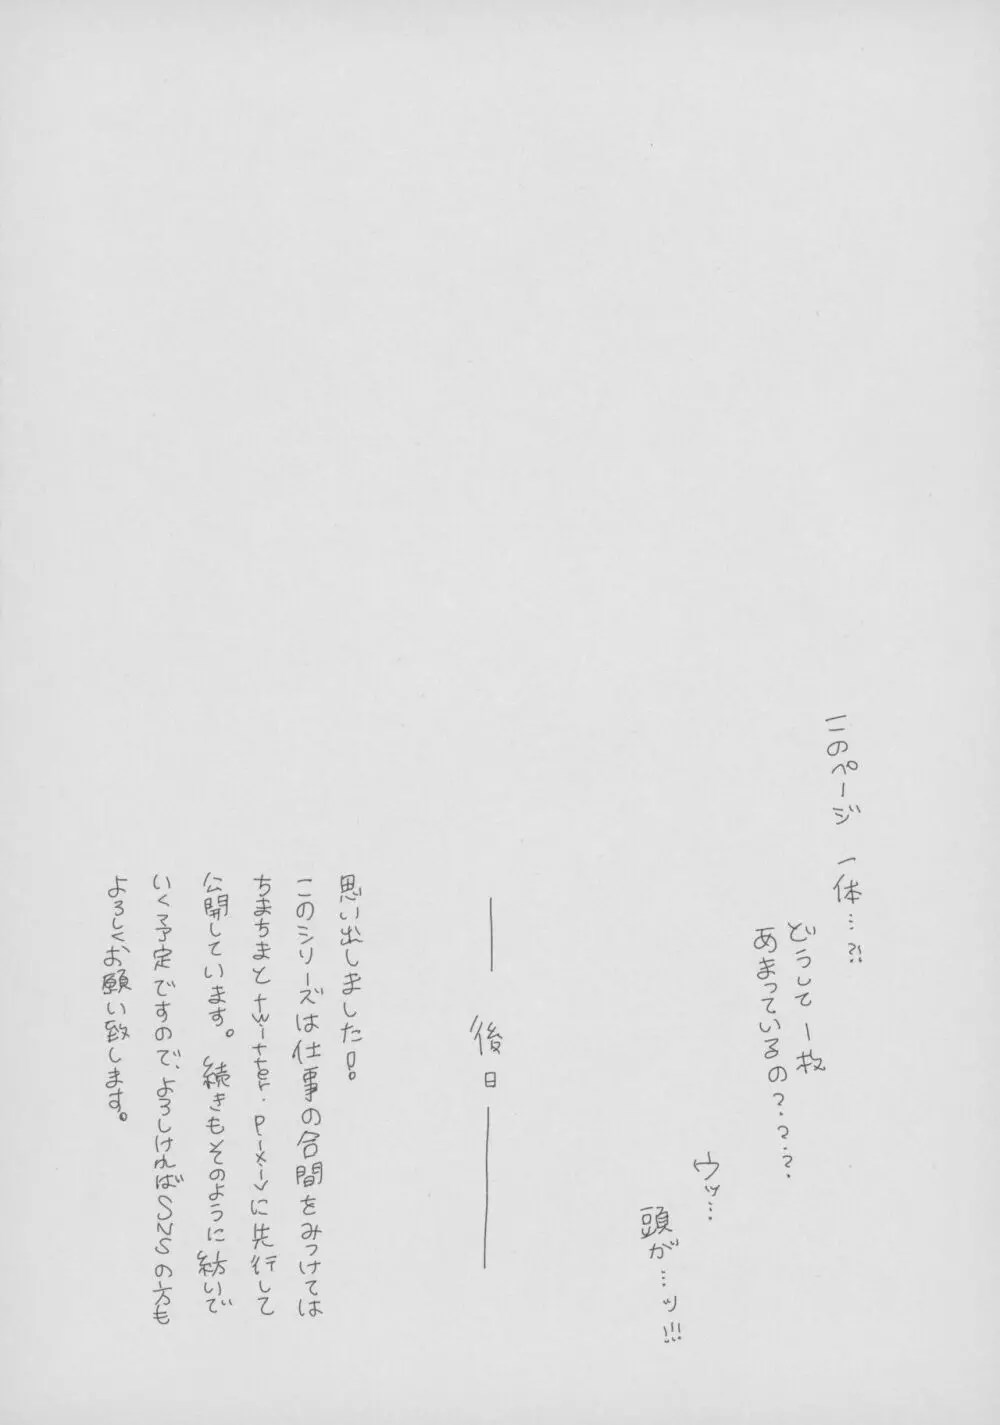 このページ 一体…?!
どうして一枚
あまっているの?.?.?.
ウッ…
頭が…ッ!!!
後日
思い出しました!。
このシリーズは仕事の合間をみつけては
ちまちまとtwitter.pixivに先行して
公開しています。続きもそのように紡いで
いく予定ですので、よろしければSNSの方も
よろしくお願い致します。